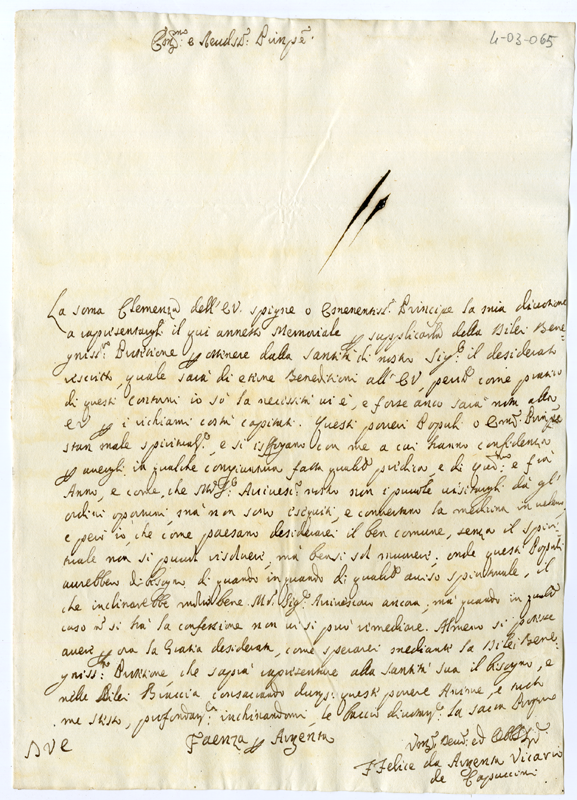 4-03-065
Em.mo e Rev.do Principe
La soma Clemenza dell'EV. spigne o Eminentiss. Principe la mia divotione
a rapresentargli il qui annesso Memoriale supplicarla della di lei Beni
gniss. Protitione ottinere dalla Santità di nostro Sig. il desiderato
rescritto, quale sarà di etterne Beneditioni all'EV, perché come pratico
di questi contorni io sò la necissità vi è, e forse anco sarà nota alla
EV i richiami costà capitati. Questi poveri Popoli o Em. Principe
stan male spiritual.e, e si isffogano con me a cui hanno confidenza
avergli in qualche congiuntura fatta qualche pridica, e di e frà
Anno, e come, che Arcivesc. nostro non i puole visitargli dà gl'
ordini oportuni, mà non sono eseguiti, e convertano la medicina in veleno
e però io, che come paesano desidererei il ben comune, senza il spiri
tuale non si puole risolvere, mà bensi sol muovere, onde questi Popoli
averebbero di bisogno, di quando in quando di qualche aviso spirituale, il
che inclinarebbe molto bene M. Sig. Arcivescovo ancora, mà quando in qualche
caso n. si hà la confessione non vi si può rimediare. Almeno si potesse
avere ora la Gratia desiderata, come sperarei mediante la di lei Beni
gniss. Protitione, che saprà rapresentare alla Santità sua il bisogno, e
nelle di lei Braccia consacrando questi povere Anime, e tutto
me stesso, profondam. inchinandomi, le baccio la sacra Porpora
DVE
Faenza Argenta
F Felice da Argenta Vicario
de Capuccini